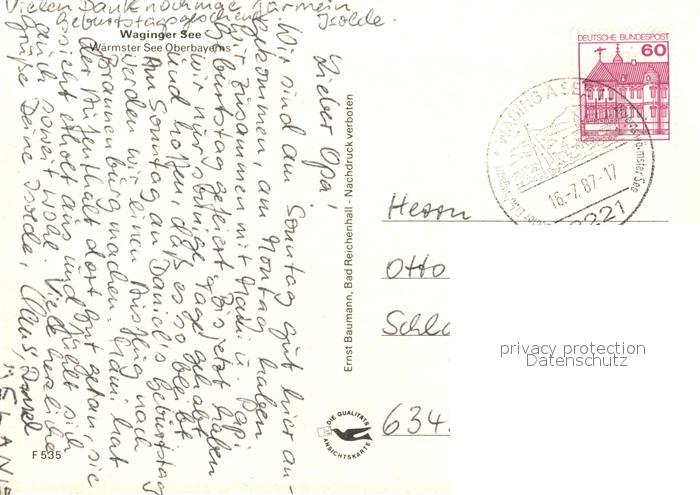 Vielen Dank nochmal für mein
Geburtstagsgeschenk Isolde.
Waginger See
Wärmster See Oberbayerns
Lieber Opa!
Wir sind am Sonntag gut hier an-
gekommen, am Montag haben
wir zusammen mit Mami u. Papi
Geburtstag gefeiert. Bis jetzt haben
wir nur sonnige Tage gehabt
und hoffen, daß es so bleibt.
Am Sonntag an Daniels Geburtstag
werden wir einen Ausflug nach
Brannenburg machen. Mami hat
der Aufenthalt dort gut getan, sie
sieht erholt aus und fühlt sich
auch soweit wohl. Viele herzliche
Grüße Deine Isolde, Claus, Daniel
MELANIE
F 535
Ernst Baumann, Bad Reichenhall - Nachdruck verboten
DIE QUALITÄTS
ANSICHTSKARTE
DEUTSCHE BUNDESPOST
60
WAGING A SEE
16.-7.87-17
8221
Herrn
Otto
Schlo
634.
privacy protection
Datenschutz